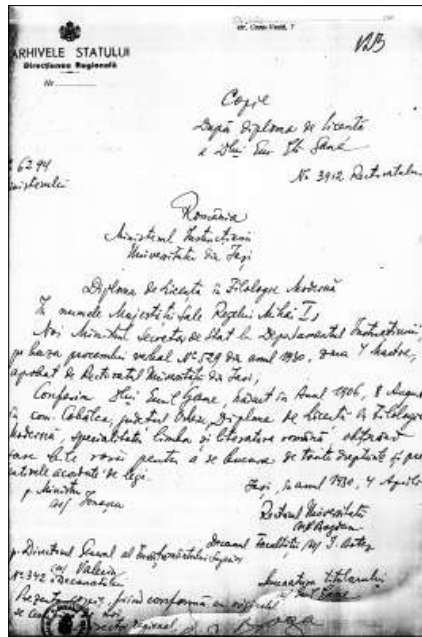 Str. Cuza-Vodă, 7
ARHIVELE STATULUI
Direcțiunea Regională
Nr.
Copie
După diploma de Licență
a Dlui Em. Gané
6294
Ministerului
No 3912 Rectoratului
România
Ministerul Instrucțiunii
Universitatea din Iași
Diploma de Licență în Filologie Modernă
În numele Majestății Sale Regelui Mihai I,
Noi Ministrul Secretar de Stat la Departamentul Instrucțiunii,
pe baza procesului verbal No 529 din anul 1930, luna 4 Martie,
aprobat de Rectoratul Universității din Iași,
Conferim Dlui Emil Gane, născut în Anul 1906, 8 August
în com. Cobâlca, județul Orhei, Diploma de Licență în Filologie
Modernă, specialitatea limba și literatura română, obținând
bile pentru a se bucura de toate drepturile și
acordate de lege.
Iași, în anul 1930, 4 Aprilie
p. Ministru
Rectorul Universității
Bogdan
Decanul Facultății I. Botez
p. Directorul General al Învățământului Superior
Valeriu
No 342 Decanatului
Semnătura titularului
Emil Gane
Prezenta copie, fiind conformă cu originalul
se de noi
Director regional,